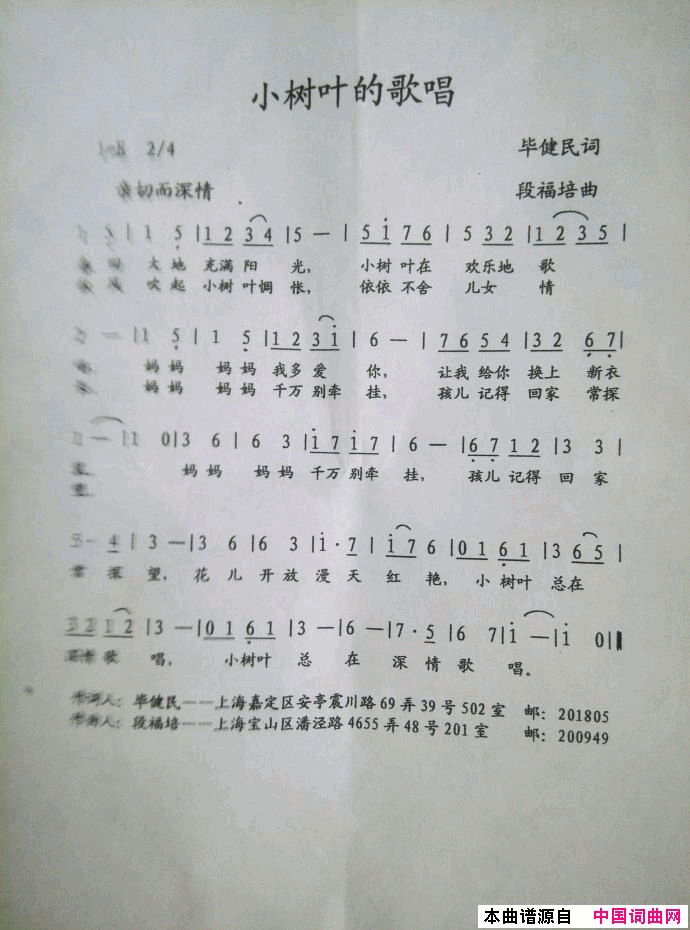 小树叶的歌唱
2/4
毕健民词
切而深情
段福培曲
5 | 1 5 | 1 2 3 4 | 5 — | 5 1 7 6 | 5 3 2 | 1 2 3 5 |
大地 充满 阳 光, 小树 叶在 欢乐地 歌
吹起 小树 叶惆 怅, 依依 不舍 儿女 情
— | 1 5 | 1 5 | 1 2 3 1 | 6 — | 7 6 5 4 | 3 2 6 7 |
妈妈 妈妈 我多 爱 你, 让我 给你 换上 新衣
妈妈 妈妈 千万 别牵 挂, 孩儿 记得 回家 常探
— | 1 0 | 3 6 | 6 3 | 1 7 1 7 | 6 — | 6 7 1 2 | 3 3 |
妈妈 妈妈 千万 别牵 挂, 孩儿 记得 回 家
4 | 3 — | 3 6 | 6 3 | 1 · 7 | 1 7 6 | 0 1 6 1 | 3 6 5 |
探 望, 花 儿 开 放 漫 天 红 艳, 小 树叶 总在
1 2 | 3 — | 0 1 6 1 | 3 — | 6 — | 7 · 5 | 6 7 | 1 — | 1 0 ‖
歌 唱, 小树叶 总 在 深 情 歌 唱。
作词人: 毕健民——上海嘉定区安亭震川路 69 弄 39 号 502 室 邮: 201805
作曲人: 段福培——上海宝山区潘泾路 4655 弄 48 号 201 室 邮: 200949
本曲谱源自 中国词曲网